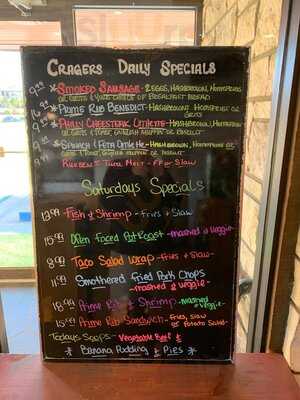 Cragers Daily Specials
*Smoked Sausage - 2 eggs, Hashbrown, Homefries
or Grits & your choice of Breakfast Bread
*Prime Rib Benedict - Hashbrown, Homefries or
Grits
*Philly Cheesesteak Omelette - Hashbrown, Homefries
or Grits & Toast, English Muffin or Biscuit
*Spinach & Feta Omelette - Hashbrown, Homefries or
Grits & Toast, English Muffin or Biscuit
Tuna Melt - FF or Slaw
Saturdays Specials
13.99 Fish & Shrimp - fries + slaw
15.99 Open Faced Pot Roast - mashed & veggie -
8.99 Taco Salad Wrap - fries & slaw -
11.99 Smothered Fried Pork Chops
- mashed & veggie -
18.99 Prime Rib & Shrimp - mashed
& veggie -
15.99 Prime Rib Sandwich - fries, slaw
or potato salad -
Todays Soups - Vegetable Beef &
* Banana Pudding & Pies *